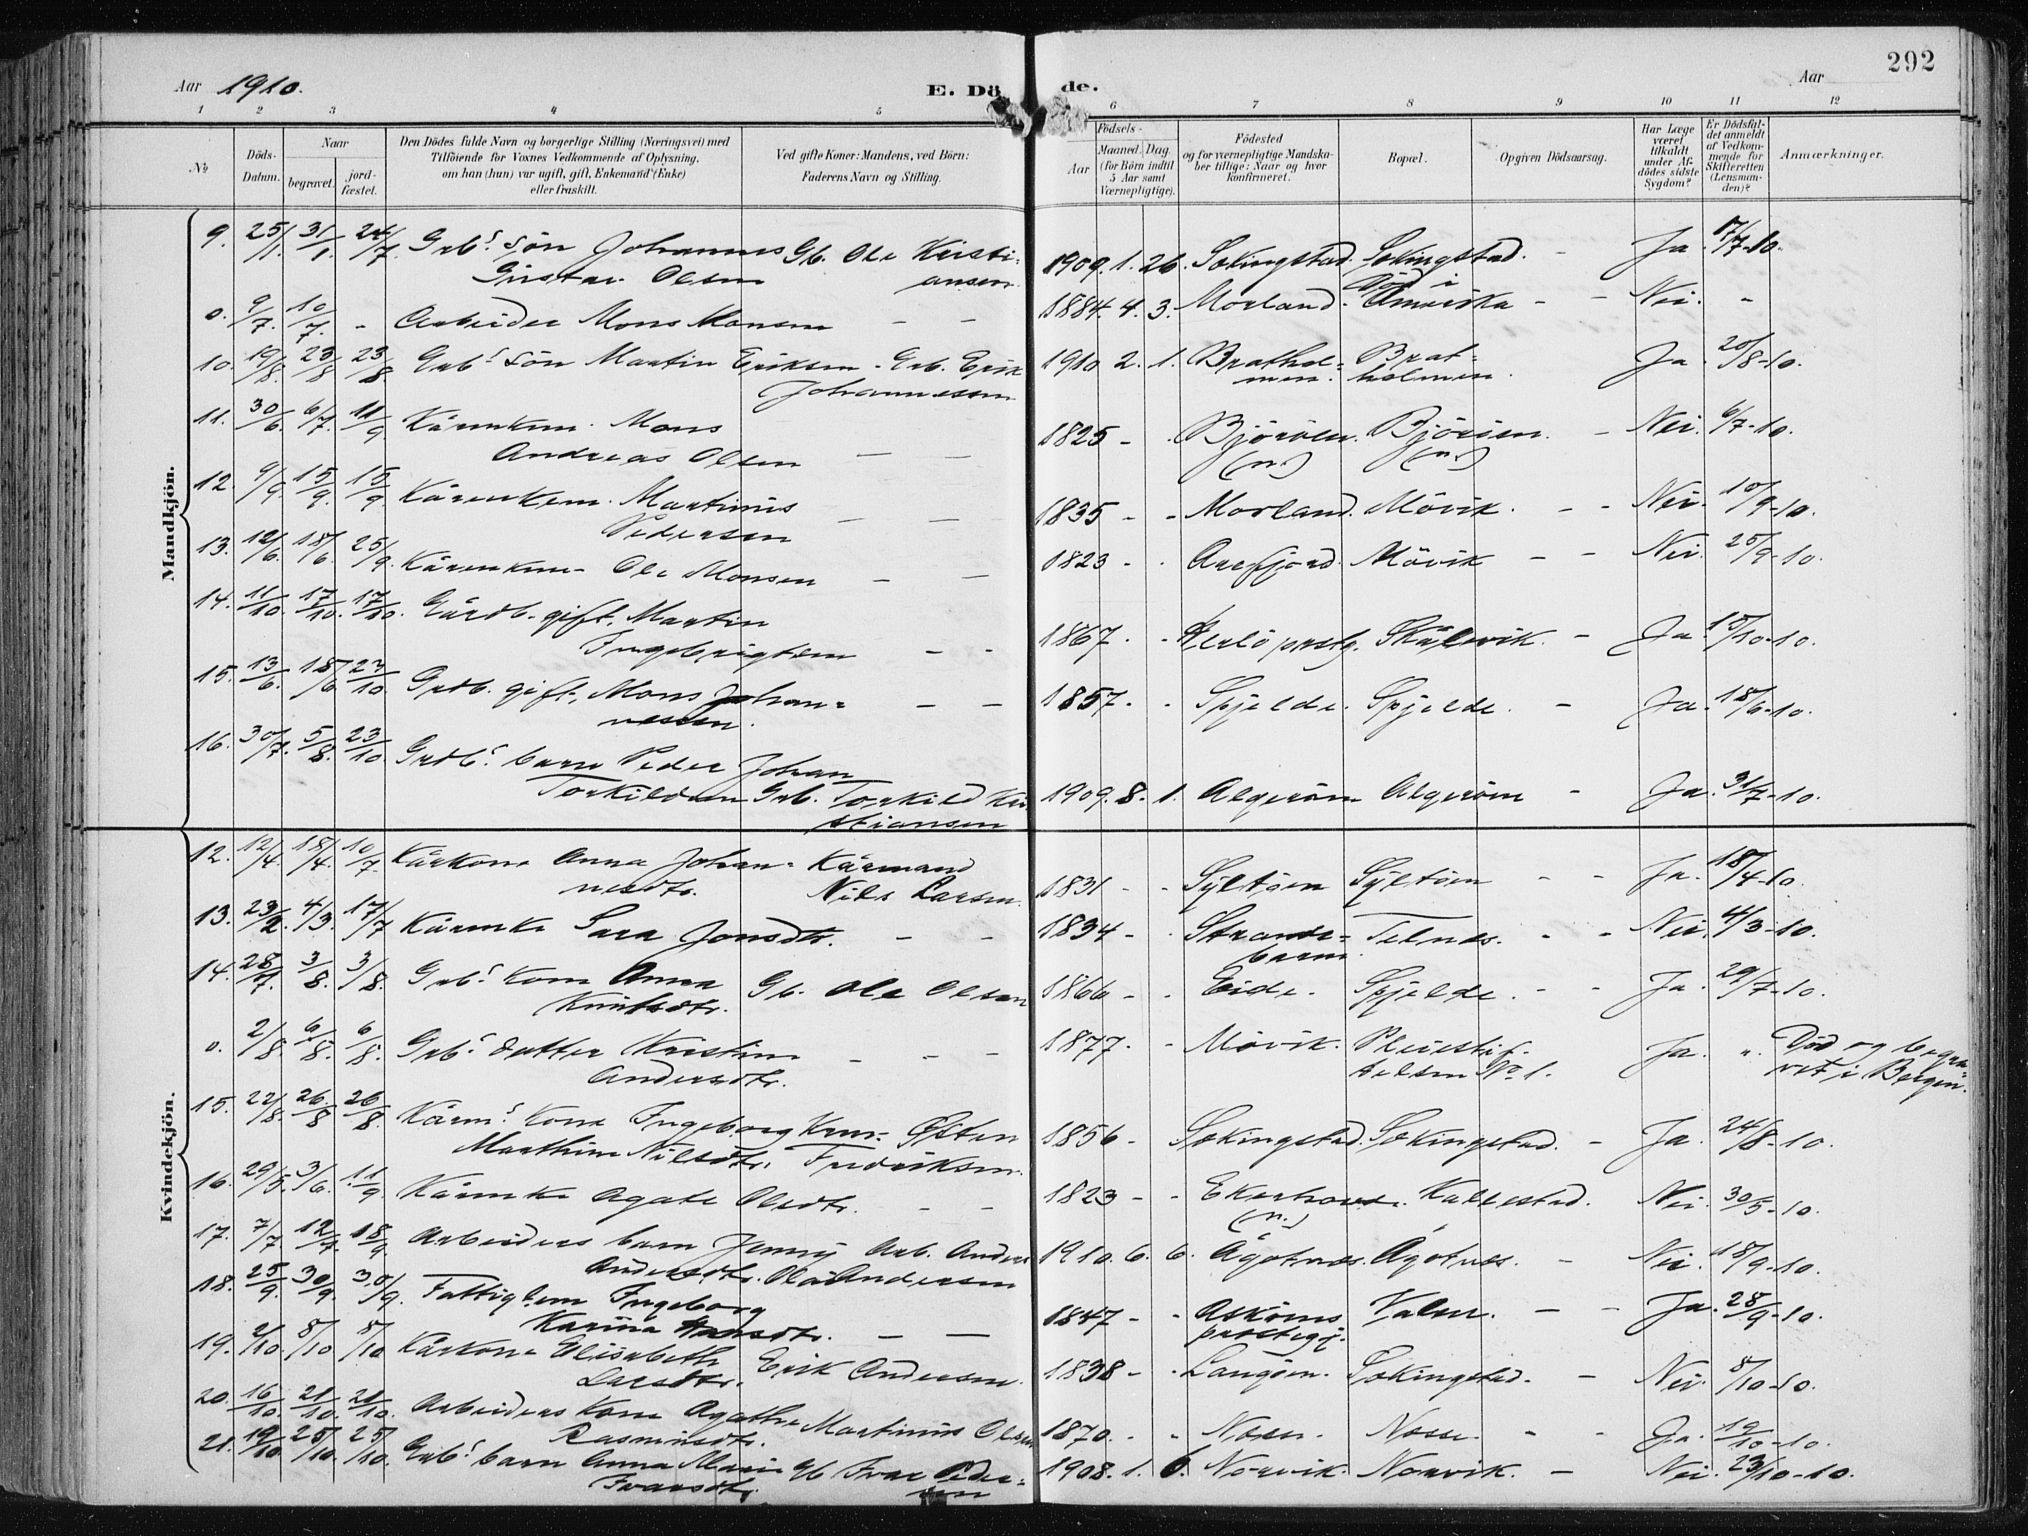 292
Aar 1910. E. Dö de. Aar
1 2 3 4 5 6 7 8 9 10 11 12
No
Döds-Datum.
Naar
begravet.
jord-fæstet.
Den Dödes fulde Navn og borgerlige Stilling (Næringsvei) med
Tilföiende for Voxnes Vedkommende af Oplysning,
om han (hun) var ugift, gift, Enkemand (Enke)
eller fraskilt.
Ved gifte Koner: Mandens, ved Börn:
Faderens Navn og Stilling.
Födsels-
Aar
Maaned. Dag.
(for Börn indtil
5 Aar samt
Værnepligtige).
Födested
og for værnepligtige Mandska-
ber tillige: Naar og hvor
konfirmeret.
Bopæl.
Opgiven Dödsaarsag.
Har Læge
været
tilkaldt
under Af-
dödes sidste
Sygdom?
Er Dödsfal-
det anmeldt
af Vedkom-
mende for
Skifteretten
(Lensman-
den)?
Anmærkninger.
Mandkjön.
9. 25/1 31/1 24/7 Grb.s Sön Johannes Gb. Ole Kristi- 1909. 1. 26. Solingstad. Solingstad. - Ja 17/7-10.
Gustav Olsen ansen
0. 9/7. 10/7. - Arbeider Mons Monsen - - 1884. 4. 3. Morland. Död i Amerika - - Nei. -
10. 19/8. 23/8 23/8 Grb.s Sön Martin Eriksen - Grb. Erik 1910 2. 1. Brathol- Brat- Ja. 20/8-10.
Johannessen men. holmen.
11. 30/6. 6/7. 11/9 Kårenkem. Mons 1825 - - Björöen. Björöen. - Nei. 6/7-10.
Andreas Olsen - - (n.) (n.)
12. 9/9. 15/9. 15/9 Kårenkem. Martinus 1835 - - Morland. Mövik. - - Nei. 10/9-10.
Pedersen - -
13. 12/6. 18/6. 25/9. Kårenkem. Ole Monsen - - 1823 - - Arefjord. Mövik - - Nei. 25/9-10.
14. 11/10. 17/10. 17/10. Gårdb. gift, Martin 1867. - Herlö prstg. Skålevik. - Ja. 15/10-10.
Ingebrigtsen - -
15. 13/6. 18/6. 23/10. Grdb. gift, Mons Johan- - - 1857. - Spjelde. Spjelde. - Ja. 18/6-10.
nessen.
16. 30/7. 5/8. 23/10 Grdb.s barn Peder Johan
Torkildsen Grb. Torkild Kri 1909. 8. 1. Algeröen Algeröen - Ja. 31/7-10.
stiansen
Kvindekjön.
12. 12/4. 18/4. 10/7. Kårkone Anna Johan- Kårmand 1831 - - Syltöen Syltöen - - Ja. 18/4-10.
nesdtr. Nils Larsen.
13. 23/2. 4/3. 17/7 Kårenke Sara Jonsdtr. - - 1834 - - Strande- Telnes. - - Nei. 4/3-10.
barm.
14. 28/7. 3/8. 3/8. Grb.s Kone Anna Gb. Ole Olsen 1866 - - Eide. Spjelde. - - Ja. 29/7-10.
Knutsdtr.
0. 2/8. 6/8. 6/8. Grb.s datter Kristine - - - 1877. - Mövik. Pleiestif- Ja. ". Död og begra-
Andersdtr. telsen No 1. vet i Bergen.
15. 22/8. 26/8 26/8. Kårm.s Kone Ingeborg Krm. Östen 1856 - Solingstad. Solingstad. - Ja. 24/8-10.
Marthine Nilsdtr. Fredriksen.
16. 29/5. 3/6. 11/9 Kårenke Agate Olsdtr. - - 1823 - - Ekerhovd. Kallestad. Nei. 30/5-10.
(n.)
17. 7/7. 12/7. 18/9. Arbeiders barn Jenny Arb. Anders 1910. 6. 6. Ågotnes. Ågotnes. - Nei. 18/9-10.
Andersdtr. Andersen
18. 25/9. 30/9. 30/9. Fattiglem Ingeborg 1847 - - Asköens Valen. - - Ja. 28/9-10.
Karina Hansdtr. - - præstegj.
19. 2/10. 8/10 8/10 Kårkone Elisabeth Erik Andersen. 1838 - - Langöen. Solingstad. - Nei. 8/10-10.
Larsdtr.
20. 16/10. 21/10. 21/10. Arbeiders Kone Agathe Martinus Olsen 1870. - - Nesse. Nesse. - - Ja. 19/10-10.
Rasmusdtr.
21. 19/10. 25/10. 25/10. Grb.s barn Anna Marie Gb Ivar Peder- 1908. 1. 6. Norvik. Norvik. - Nei. 23/10-10.
Ivarsdtr. sen